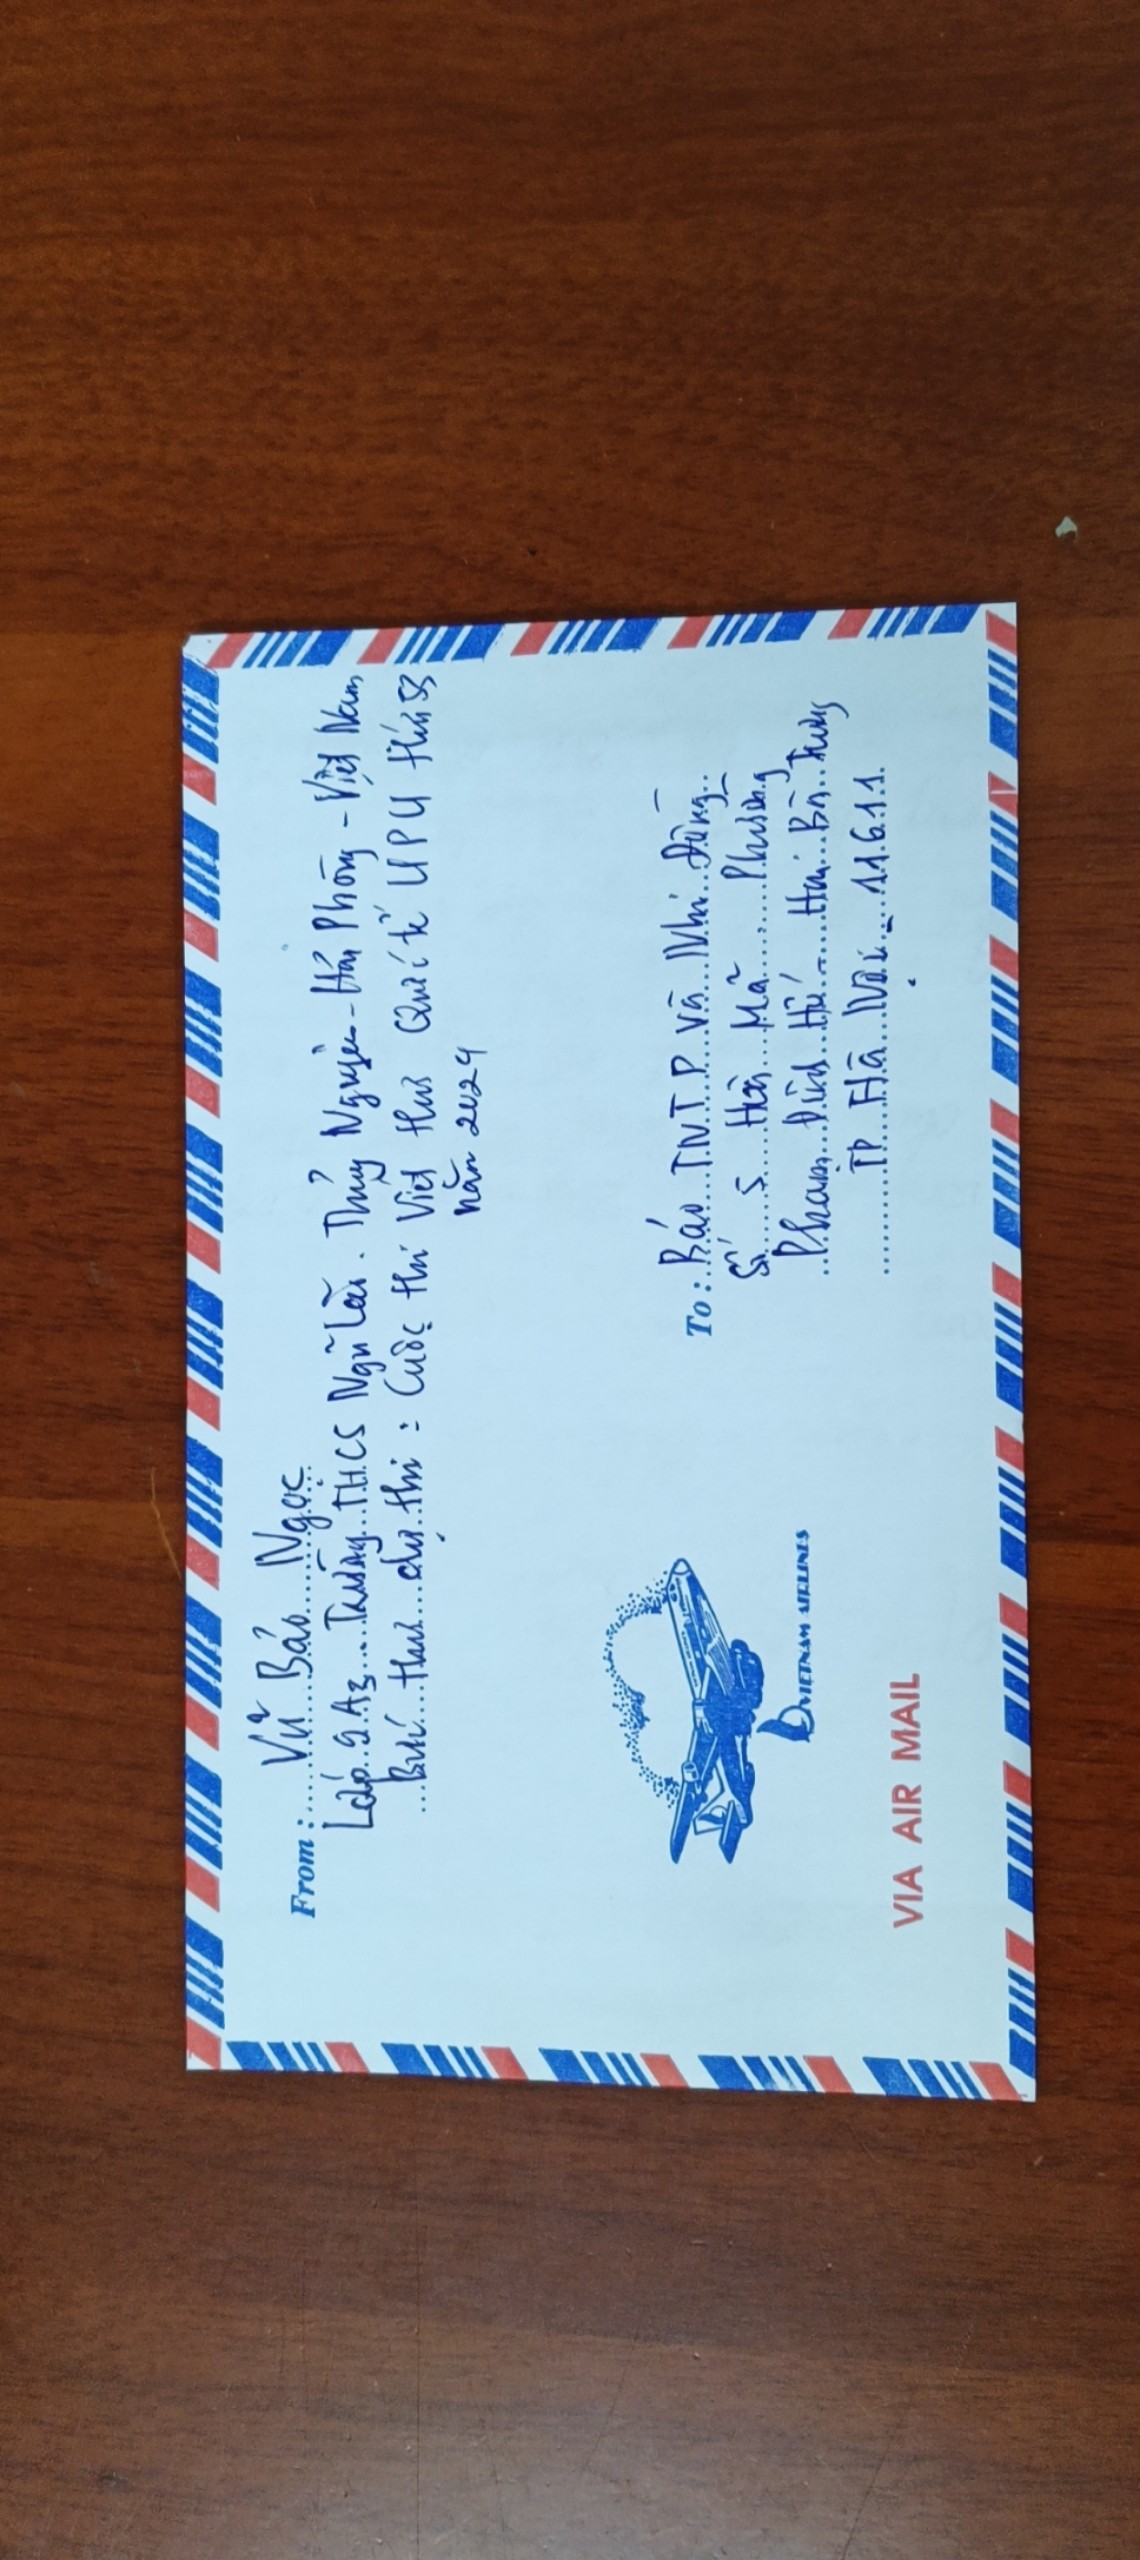 From : Vũ Bảo Ngọc
Lớp 9A3 Trường THCS Ngũ Lão . Thủy Nguyên - Hải Phòng - Việt Nam
Bức thư dự thi : Cuộc thi Viết thư Quốc tế UPU thứ 53
năm 2024
To : Báo TNTP và Nhi Đồng
Số 5 Hòa Mã , Phường
Phạm Đình Hổ - Hai Bà Trưng
TP Hà Nội - 11611
VIETNAM AIRLINES
VIA AIR MAIL